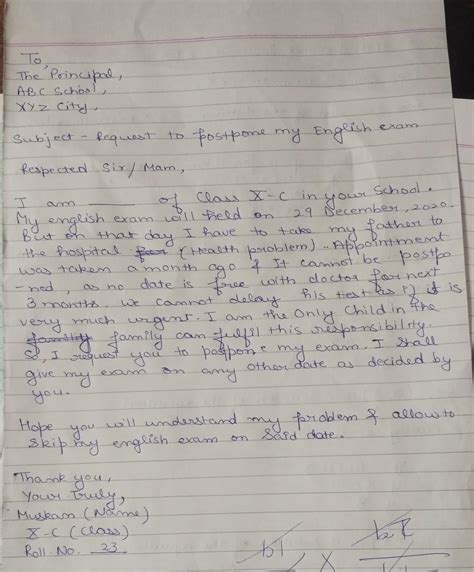 To,
The Principal,
ABC School,
XYZ City,
Subject - Request to postpone my English exam
Respected Sir/Mam,
I am ____ of Class X-C in your School.
My english exam will held on 29 December, 2020.
But on that day I have to take my father to
the hospital for (Health problem). Appointment
was taken a month ago & It cannot be postpo
-ned, as no date is free with doctor for next
3 months. We cannot delay his test as it is
very much urgent. I am the Only Child in the
family family can fulfil this responsibility.
So, I request you to postpone my exam. I shall
give my exam on any other date as decided by
you.
Hope you will understand my problem & allow to
skip my english exam on Said date.
Thank you,
Your Truly,
Muskan (Name)
X-C (Class)
Roll. No. 23